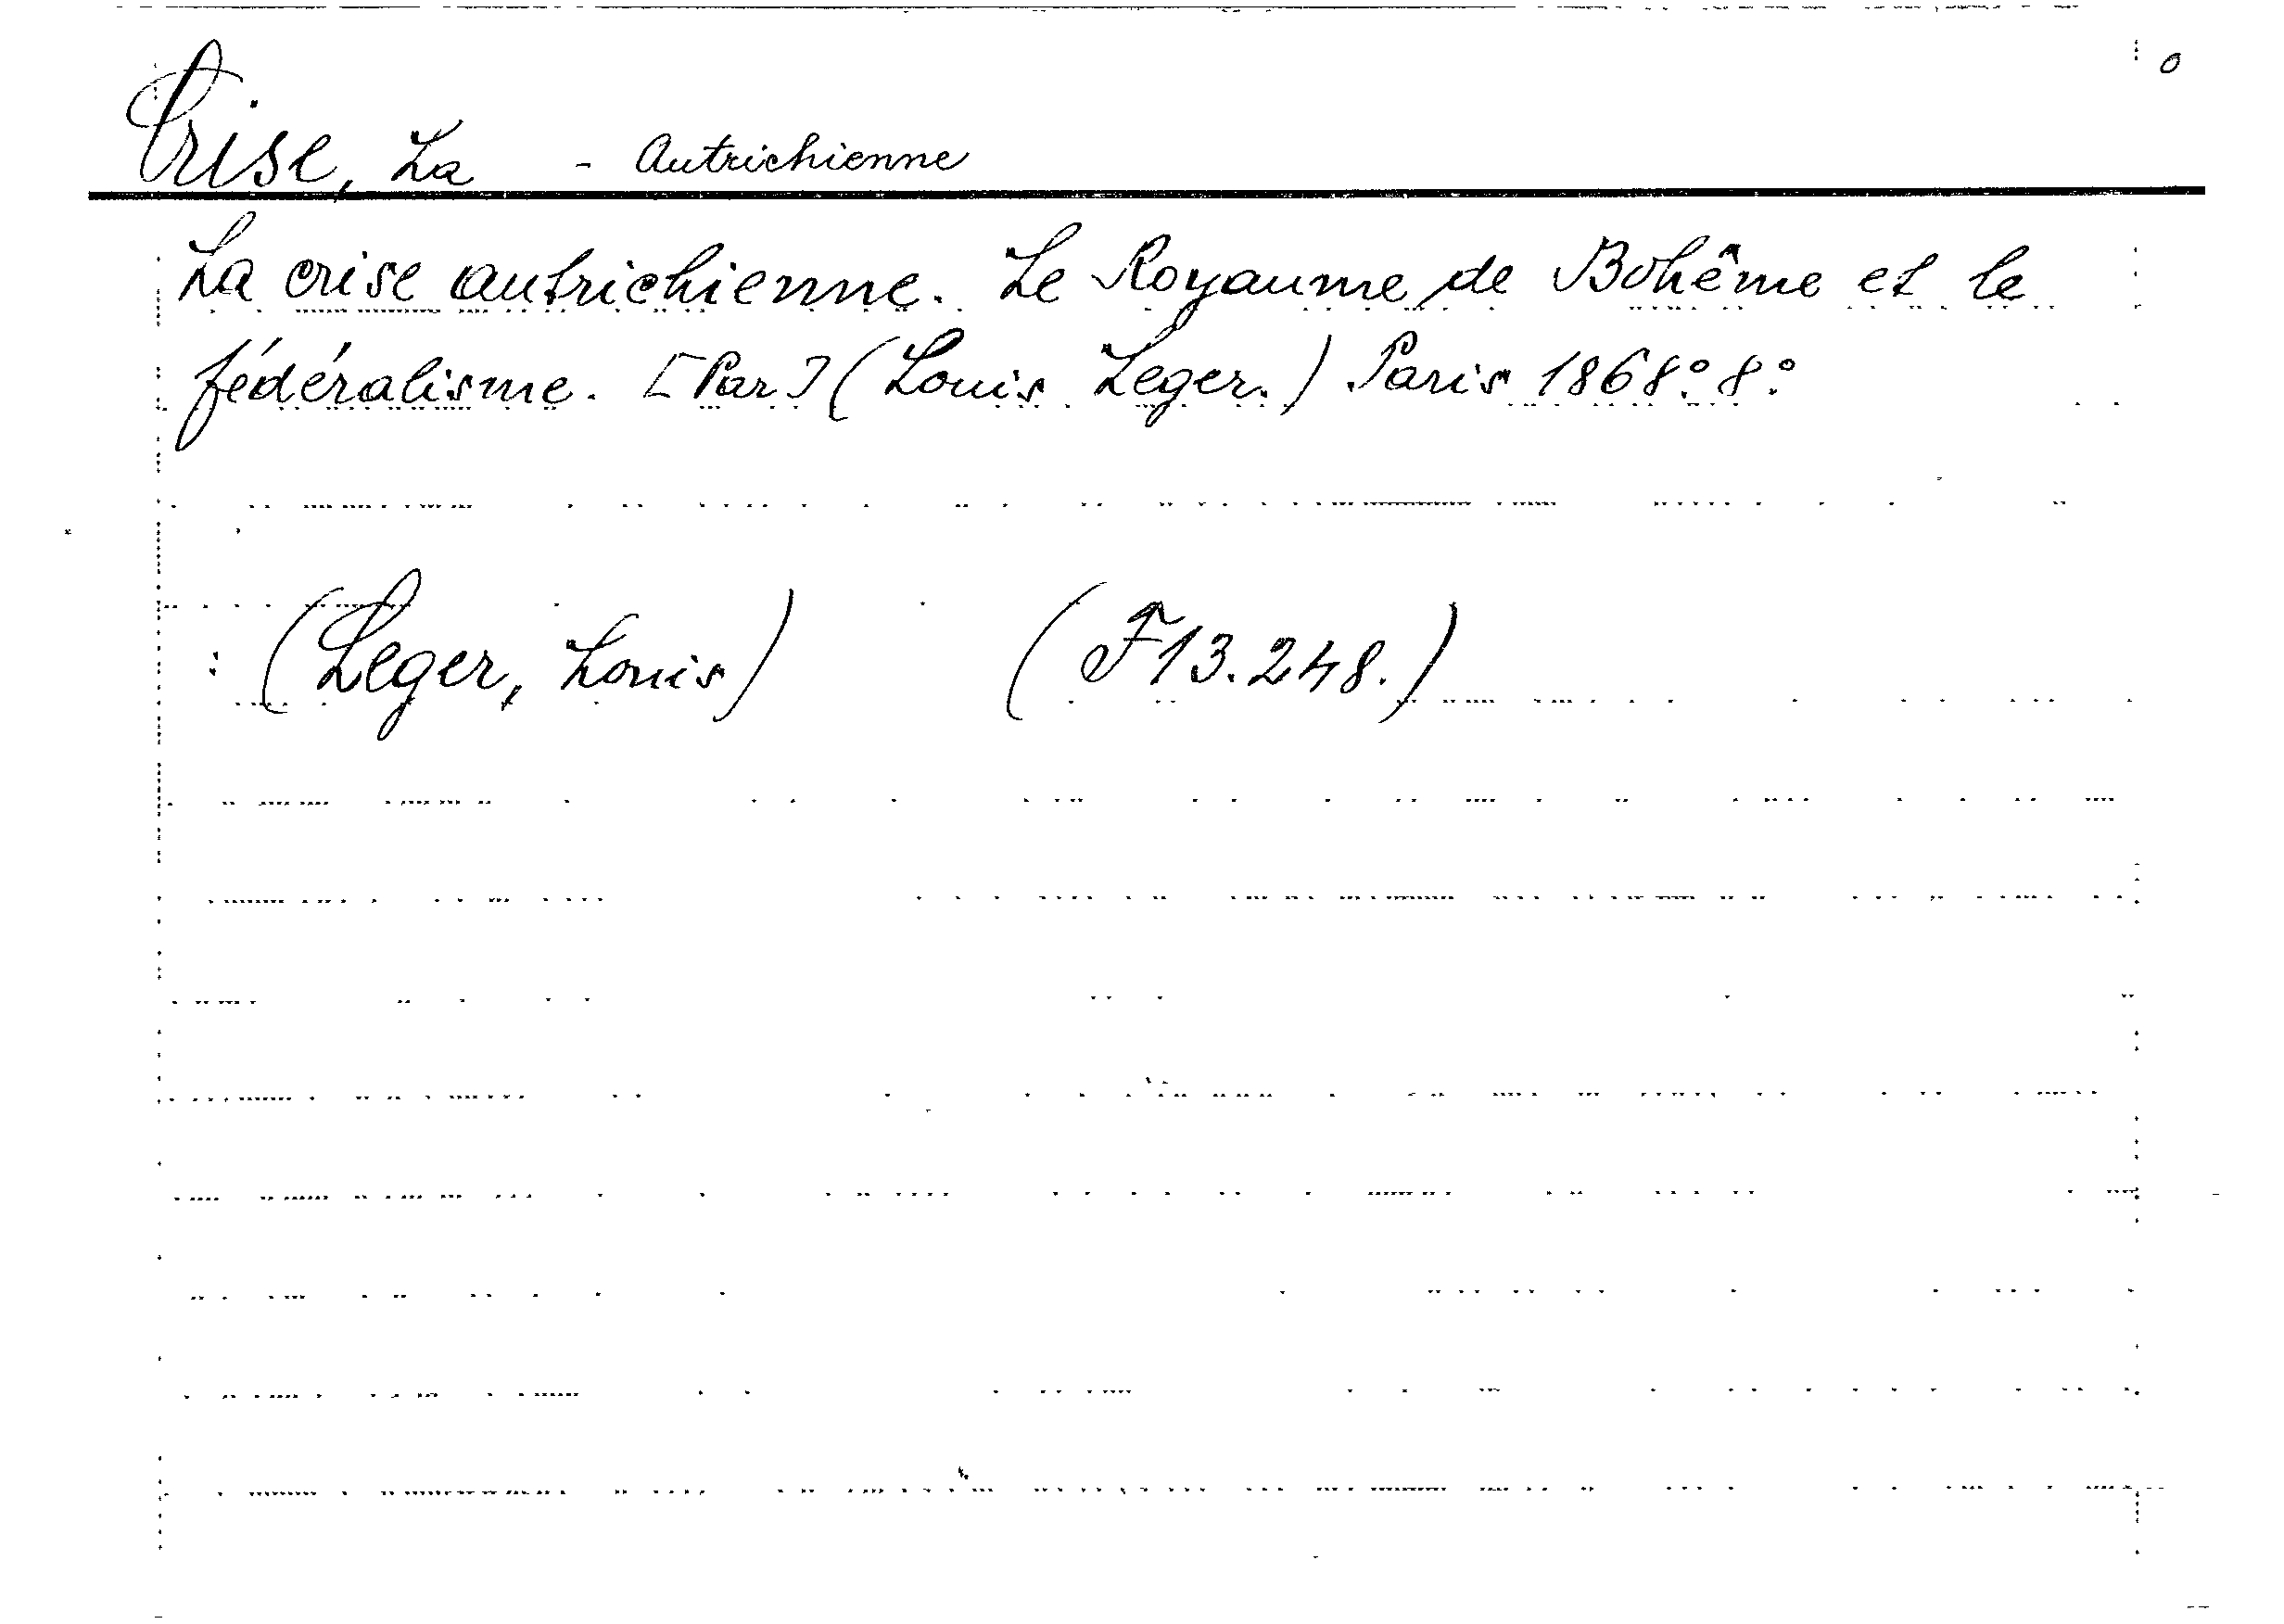 o
Crise, La - Autrichienne
La crise autrichienne. Le Royaume de Bohême et le
fédéralisme. [Par] (Louis Leger.) Paris 1868. 8°.
: (Leger, Louis) (F13.248.)